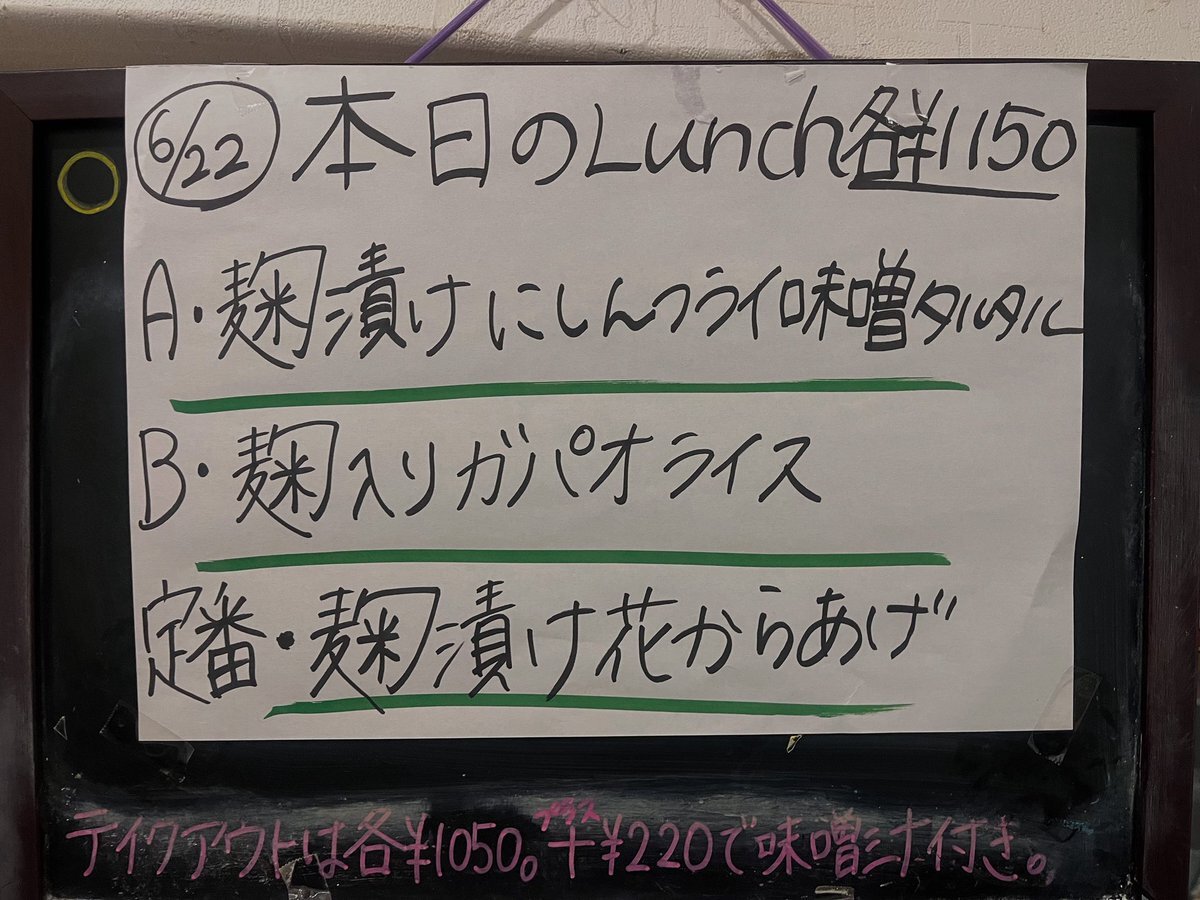 6/22 本日のLunch各¥1150
A・麹漬けにしんフライ味噌タルタル
B・麹入りガパオライス
定番・麹漬け花からあげ
プラス
テイクアウトは各¥1050。+¥220で味噌汁付き。